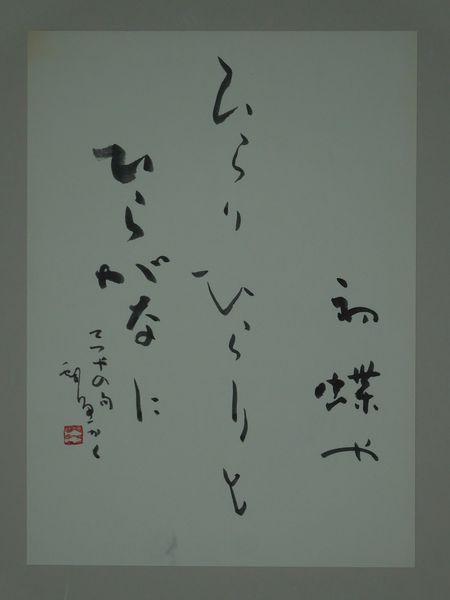 初蝶や
ひらりひらりと
ひらがなに
てつやの句